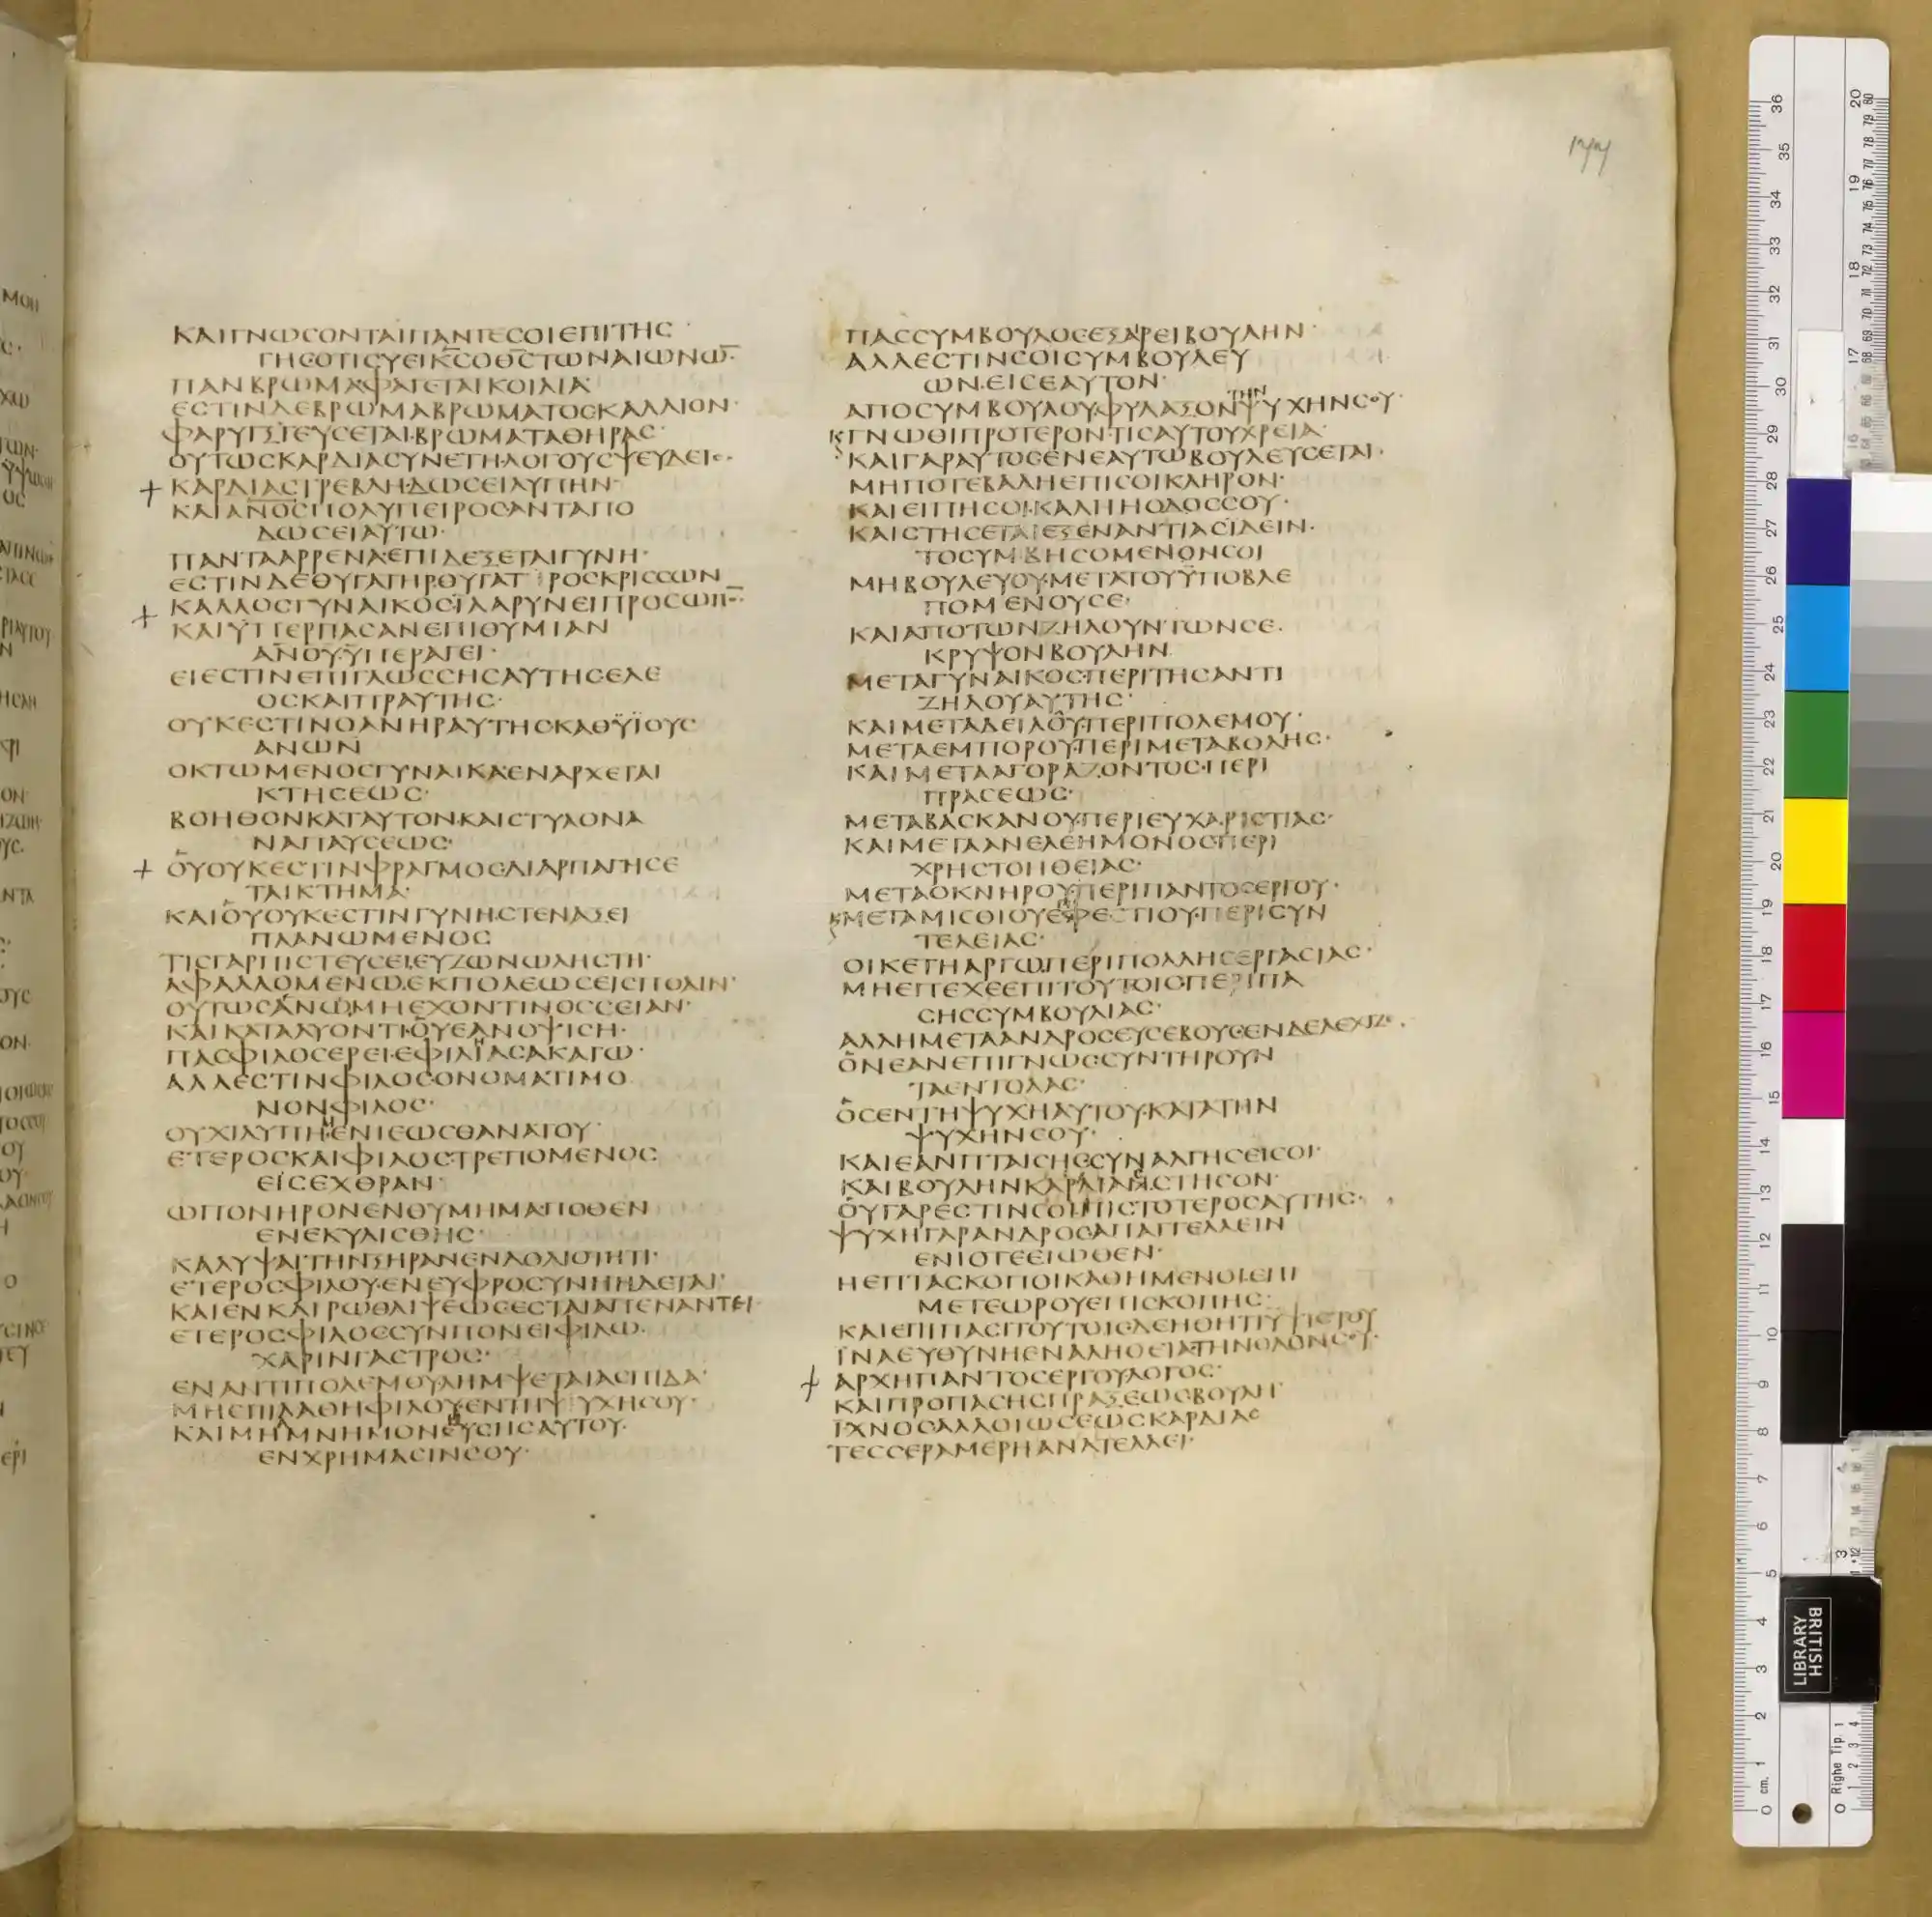 ΚΑΙΓΝΩϹΟΝΤΑΙΠΑΝΤΕϹΟΙΕΠΙΤΗϹ
ΓΗϹΟΤΙϹΥΕΙΚ̅Ϲ̅ΟΘ̅Ϲ̅ΤΩΝΑΙΩΝΩ̅·
ΠΑΝΒΡΩΜΑΦΑΓΕΤΑΙΚΟΙΛΙΑ
ΕϹΤΙΝΔΕΒΡΩΜΑΒΡΩΜΑΤΟϹΚΑΛΛΙΟΝ·
ΦΑΡΥΓΞΓΕΥϹΕΤΑΙ·ΒΡΩΜΑΤΑΘΗΡΑϹ·
ΟΥΤΩϹΚΑΡΔΙΑϹΥΝΕΤΗ·ΛΟΓΟΥϹΨΕΥΔΕΙϹ·
ΚΑΡΔΙΑϹΤΡΕΒΛΗ·ΔΩϹΕΙΛΥΠΗΝ·
ΚΑΙΑΝ̅Ο̅Ϲ̅ΠΟΛΥΠΕΙΡΟϹΑΝΤΑΠΟ
ΔΩϹΕΙΑΥΤΩ·
ΠΑΝΤΑΑΡΡΕΝΑ·ΕΠΙΔΕΞΕΤΑΙΓΥΝΗ·
ΕϹΤΙΝΔΕΘΥΓΑΤΗΡΘΥΓΑΤΡΟϹΚΡΙϹϹΩΝ
ΚΑΛΛΟϹΓΥΝΑΙΚΟϹΪΛΑΡΥΝΕΙΠΡΟϹΩΠ̅·
ΚΑΙΫΠΕΡΠΑϹΑΝΕΠΙΘΥΜΙΑΝ
ΑΝ̅Ο̅Υ̅·ΫΠΕΡΑΓΕΙ·
ΕΙΕϹΤΙΝΕΠΙΓΛΩϹϹΗϹΑΥΤΗϹΕΛΕ
ΟϹΚΑΙΠΡΑΥΤΗϹ·
ΟΥΚΕϹΤΙΝΟΑΝΗΡΑΥΤΗϹΚΑΘΫΪΟΥϹ
ΑΝ̅Ω̅Ν̅
ΟΚΤΩΜΕΝΟϹΓΥΝΑΙΚΑ·ΕΝΑΡΧΕΤΑΙ
ΚΤΗϹΕΩϹ·
ΒΟΗΘΟΝΚΑΤΑΥΤΟΝ·ΚΑΙϹΤΥΛΟΝΑ
ΝΑΠΑΥϹΕΩϹ·
ΟΥΟΥΚΕϹΤΙΝΦΡΑΓΜΟϹΔΙΑΡΠΑΓΗϹΕ
ΤΑΙΚΤΗΜΑ·
ΚΑΙΟΥΟΥΚΕϹΤΙΝΓΥΝΗ·ϹΤΕΝΑΞΕΙ
ΠΛΑΝΩΜΕΝΟϹ
ΤΙϹΓΑΡΠΙϹΤΕΥϹΕΙ·ΕΥΖΩΝΩΛΗϹΤΗ·
ΑΦΑΛΛΟΜΕΝΩ·ΕΚΠΟΛΕΩϹΕΙϹΠΟΛΙΝ·
ΟΥΤΩϹΑΝ̅Ω̅·ΜΗΕΧΟΝΤΙΝΟϹϹΕΙΑΝ·
ΚΑΙΚΑΤΑΛΥΟΝΤΙ·ΟΥΕΑΝΟΨΙϹΗ·
ΠΑϹΦΙΛΟϹΕΡΕΙ·ΕΦΙΛΙΑϹΑΚΑΓΩ·
ΑΛΛΕϹΤΙΝΦΙΛΟϹ·ΟΝΟΜΑΤΙΜΟ
ΝΟΝΦΙΛΟϹ·
ΟΥΧΙΛΥΠΗ·ΕΝΙΕΩϹΘΑΝΑΤΟΥ·
ΕΤΕΡΟϹΚΑΙΦΙΛΟϹ·ΤΡΕΠΟΜΕΝΟϹ
ΕΙϹΕΧΘΡΑΝ·
ΩΠΟΝΗΡΟΝΕΝΘΥΜΗΜΑ·ΠΟΘΕΝ
ΕΝΕΚΥΛΙϹΘΗϹ·
ΚΑΛΥΨΑΙΤΗΝΞΗΡΑΝΕΝΔΟΛΙΟΤΗΤΙ·
ΕΤΕΡΟϹΦΙΛΟΥ·ΕΝΕΥΦΡΟϹΥΝΗΗΔΕΤΑΙ·
ΚΑΙΕΝΚΑΙΡΩΘΛΙΨΕΩϹΕϹΤΑΙΑΠΕΝΑΝΤΕΙ·
ΕΤΕΡΟϹΦΙΛΟϹϹΥΝΠΟΝΕΙΦΙΛΩ·
ΧΑΡΙΝΓΑϹΤΡΟϹ·
ΕΝΑΝΤΙΠΟΛΕΜΟΥΛΗΜΨΕΤΑΙΑϹΠΙΔΑ·
ΜΗΕΠΙΛΑΘΗΦΙΛΟΥ·ΕΝΤΗΨΥΧΗϹΟΥ·
ΚΑΙΜΗΜΝΗΜΟΝΕΥϹΗϹΑΥΤΟΥ·
ΕΝΧΡΗΜΑϹΙΝϹΟΥ·
ΠΑϹϹΥΜΒΟΥΛΟϹΕΞΑΡΕΙΒΟΥΛΗΝ·
ΑΛΛΕϹΤΙΝϹΟΙϹΥΜΒΟΥΛΕΥ
ΩΝ·ΕΙϹΕΑΥΤΟΝ·
ΑΠΟϹΥΜΒΟΥΛΟΥ·ΦΥΛΑΞΟΝΤΗΝΨΥΧΗΝϹΟΥ·
ΓΝΩΘΙΠΡΟΤΕΡΟΝ·ΤΙϹΑΥΤΟΥΧΡΕΙΑ·
ΚΑΙΓΑΡΑΥΤΟϹΕΝΕΑΥΤΩΒΟΥΛΕΥϹΕΤΑΙ·
ΜΗΠΟΤΕΒΑΛΗΕΠΙϹΟΙΚΛΗΡΟΝ·
ΚΑΙΕΙΠΗϹΟΙ·ΚΑΛΗΗΟΔΟϹϹΟΥ·
ΚΑΙϹΤΗϹΕΤΑΙΕΞΕΝΑΝΤΙΑϹΪΔΕΙΝ·
ΤΟϹΥΜΒΗϹΟΜΕΝΟΝϹΟΙ
ΜΗΒΟΥΛΕΥΟΥ·ΜΕΤΑΤΟΥΫΠΟΒΛΕ
ΠΟΜΕΝΟΥϹΕ·
ΚΑΙΑΠΟΤΩΝΖΗΛΟΥΝΤΩΝϹΕ·
ΚΡΥΨΟΝΒΟΥΛΗΝ·
ΜΕΤΑΓΥΝΑΙΚΟϹ·ΠΕΡΙΤΗϹΑΝΤΙ
ΖΗΛΟΥΑΥΤΗϹ·
ΚΑΙΜΕΤΑΔΕΙΛΟΥ·ΠΕΡΙΠΟΛΕΜΟΥ·
ΜΕΤΑΕΜΠΟΡΟΥ·ΠΕΡΙΜΕΤΑΒΟΛΗϹ·
ΚΑΙΜΕΤΑΑΓΟΡΑΖΟΝΤΟϹ·ΠΕΡΙ
ΠΡΑϹΕΩϹ·
ΜΕΤΑΒΑϹΚΑΝΟΥ·ΠΕΡΙΕΥΧΑΡΙϹΤΙΑϹ·
ΚΑΙΜΕΤΑΑΝΕΛΕΗΜΟΝΟϹ·ΠΕΡΙ
ΧΡΗϹΤΟΗΘΕΙΑϹ·
ΜΕΤΑΟΚΝΗΡΟΥ·ΠΕΡΙΠΑΝΤΟϹΕΡΓΟΥ·
ΜΕΤΑΜΙϹΘΙΟΥΕΦΕϹΤΙΟΥ·ΠΕΡΙϹΥΝ
ΤΕΛΕΙΑϹ·
ΟΙΚΕΤΗΑΡΓΩ·ΠΕΡΙΠΟΛΛΗϹΕΡΓΑϹΙΑϹ·
ΜΗΕΠΕΧΕΕΠΙΤΟΥΤΟΙϹΠΕΡΙΠΑ
ϹΗϹϹΥΜΒΟΥΛΙΑϹ·
ΑΛΛΗΜΕΤΑΑΝΔΡΟϹΕΥϹΕΒΟΥϹΕΝΔΕΛΕΧΙΖΕ·
ΟΝΕΑΝΕΠΙΓΝΩϹϹΥΝΤΗΡΟΥΝ
ΤΑΕΝΤΟΛΑϹ·
ΟϹΕΝΤΗΨΥΧΗΑΥΤΟΥ·ΚΑΤΑΤΗΝ
ΨΥΧΗΝϹΟΥ·
ΚΑΙΕΑΝΠΤΑΙϹΗϹϹΥΝΑΛΓΗϹΕΙϹΟΙ·
ΚΑΙΒΟΥΛΗΝΚΑΡΔΙΑϹϹΤΗϹΟΝ·
ΟΥΓΑΡΕϹΤΙΝϹΟΙΠΙϹΤΟΤΕΡΟϹΑΥΤΗϹ·
ΨΥΧΗΓΑΡΑΝΔΡΟϹΑΠΑΓΓΕΛΛΕΙΝ
ΕΝΙΟΤΕΕΙΩΘΕΝ·
ΗΕΠΤΑϹΚΟΠΟΙΚΑΘΗΜΕΝΟΙ·ΕΠΙ
ΜΕΤΕΩΡΟΥΕΠΙϹΚΟΠΗϹ·
ΚΑΙΕΠΙΠΑϹΙΤΟΥΤΟΙϹΔΕΗΘΗΤΙΫΨΙϹΤΟΥ
ΪΝΑΕΥΘΥΝΗΕΝΑΛΗΘΕΙΑΤΗΝΟΔΟΝϹΟΥ·
ΑΡΧΗΠΑΝΤΟϹΕΡΓΟΥΛΟΓΟϹ·
ΚΑΙΠΡΟΠΑϹΗϹΠΡΑΞΕΩϹΒΟΥΛΗ
ΪΧΝΟϹΑΛΛΟΙΩϹΕΩϹΚΑΡΔΙΑϹ
ΤΕϹϹΕΡΑΜΕΡΗΑΝΑΤΕΛΛΕΙ·
BRITISH
LIBRARY